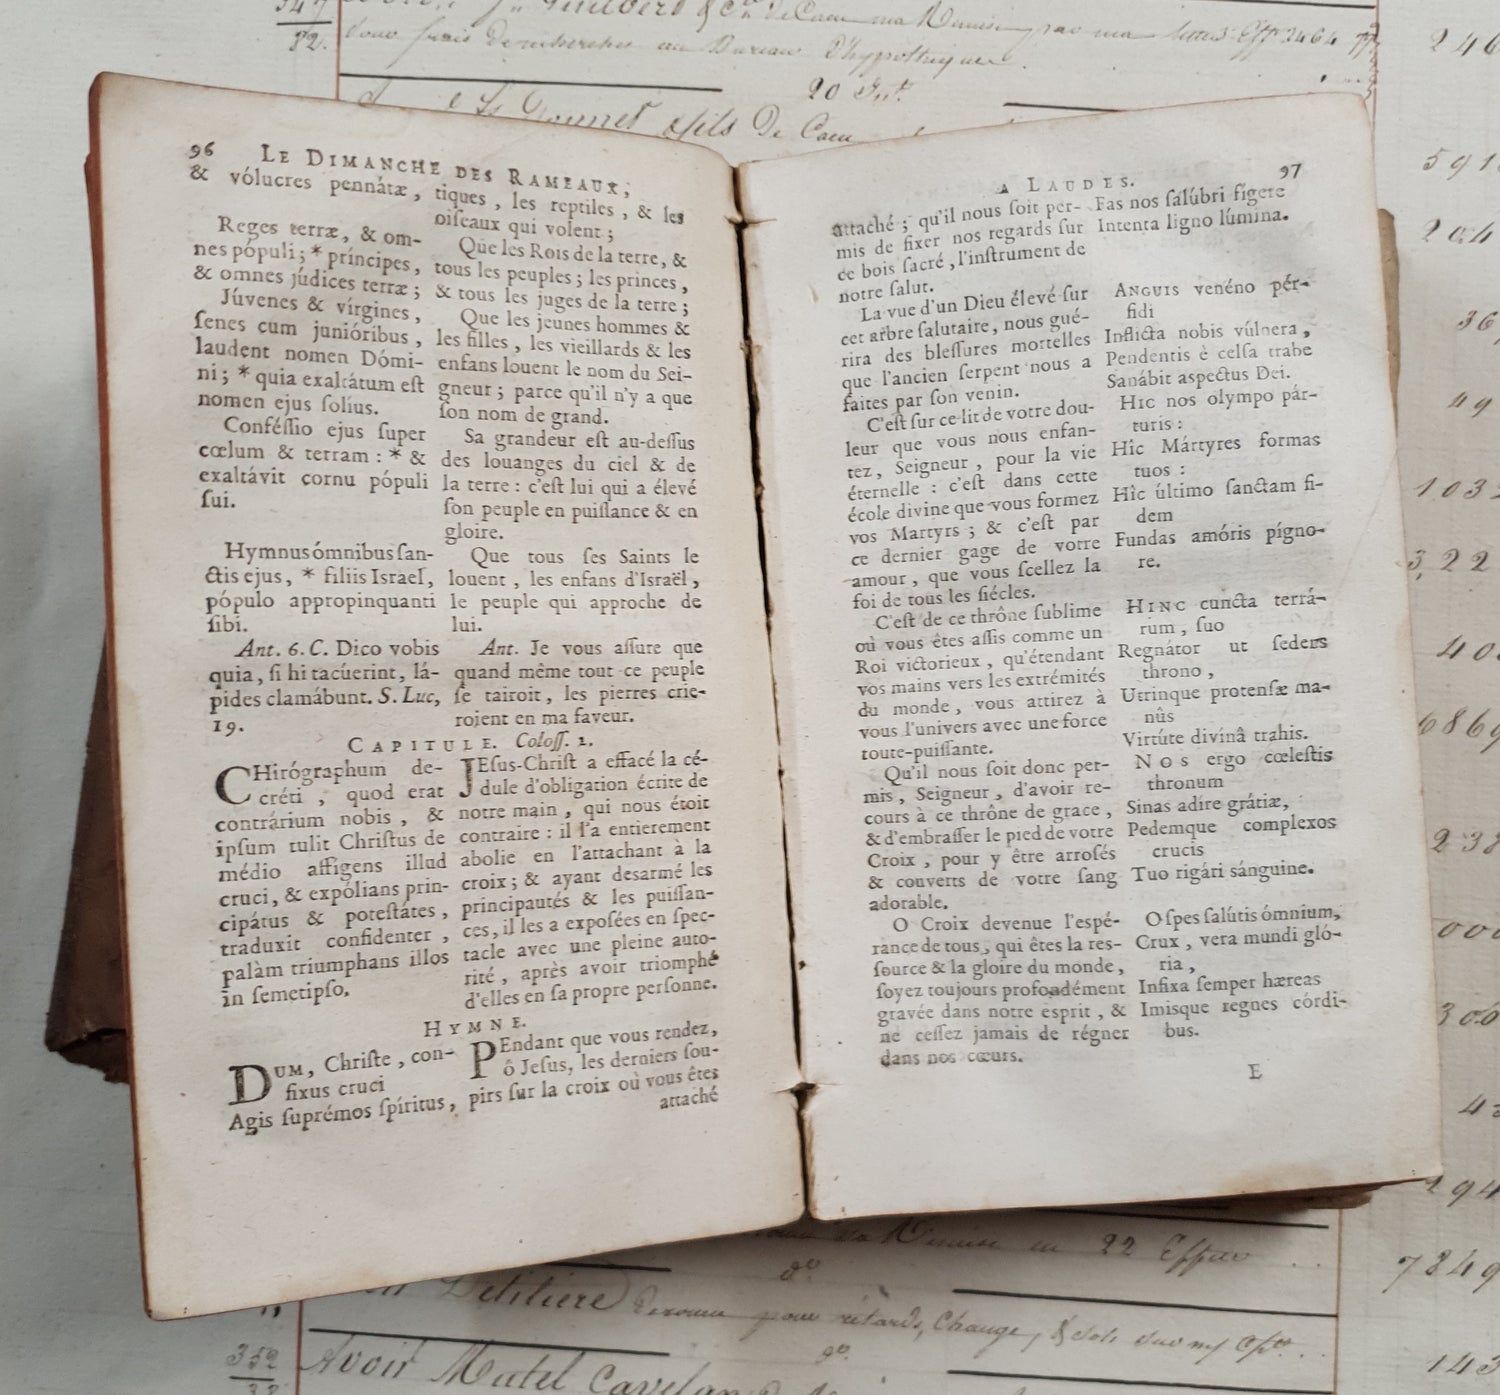 20
fils De Caen
96 LE DIMANCHE DES RAMEAUX,
& vólucres pennátæ,
Reges terræ, & om-
nes pópuli; * príncipes,
& omnes júdices terræ;
Júvenes & vírgines,
ſenes cum junióribus,
laudent nomen Dómi-
ni; * quia exaltátum eſt
nomen ejus ſolíus.
Conféſſio ejus ſuper
cœlum & terram : * &
exaltávit cornu pópuli
ſui.
Hymnus ómnibus ſan-
ctis ejus, * filiis Iſraeſ,
pópulo appropinquanti
ſibi.
Ant. 6. C. Dico vobis
quia, ſi hi tacúerint, lá-
pides clamábunt. S. Luc,
19.
tiques, les reptiles, & les
oiſeaux qui volent;
Que les Rois de la terre, &
tous les peuples; les princes,
& tous les juges de la terre;
Que les jeunes hommes &
les filles, les vieillards & les
enfans louent le nom du Sei-
gneur; parce qu'il n'y a que
ſon nom de grand.
Sa grandeur eſt au-deſſus
des louanges du ciel & de
la terre : c'eſt lui qui a élevé
ſon peuple en puiſſance & en
gloire.
Que tous ſes Saints le
louent, les enfans d'Iſraël,
le peuple qui approche de
lui.
Ant. Je vous aſſure que
quand même tout ce peuple
ſe tairoit, les pierres crie-
roient en ma faveur.
CAPITULE. Coloſſ. 2.
CHirógraphum de-
créti, quod erat
contrárium nobis, &
ipſum tulit Chriſtus de
médio affigens illud
cruci, & expólians prin-
cipátus & poteſtátes,
traduxit confidenter,
palàm triumphans illos
in ſemetipſo.
JEſus-Chriſt a effacé la cé-
dule d'obligation écrite de
notre main, qui nous étoit
contraire : il l'a entierement
abolie en l'attachant à la
croix; & ayant desarmé les
principautés & les puiſſan-
ces, il les a expoſées en ſpec-
tacle avec une pleine auto-
rité, après avoir triomphé
d'elles en ſa propre perſonne.
HYMNE.
DUM, Chriſte, con-
fixus cruci
Agis ſuprémos ſpíritus,
PEndant que vous rendez,
ô Jeſus, les derniers ſou-
pirs ſur la croix où vous êtes
attaché
A LAUDES. 97
attaché; qu'il nous ſoit per-
mis de fixer nos regards ſur
ce bois ſacré, l'inſtrument de
notre ſalut.
La vue d'un Dieu élevé ſur
cet arbre ſalutaire, nous gué-
rira des bleſſures mortelles
que l'ancien ſerpent nous a
faites par ſon venin.
C'eſt ſur ce lit de votre dou-
leur que vous nous enfan-
tez, Seigneur, pour la vie
éternelle : c'eſt dans cette
école divine que vous formez
vos Martyrs; & c'eſt par
ce dernier gage de votre
amour, que vous ſcellez la
foi de tous les ſiécles.
C'eſt de ce thrône ſublime
où vous êtes aſſis comme un
Roi victorieux, qu'étendant
vos mains vers les extrémités
du monde, vous attirez à
vous l'univers avec une force
toute-puiſſante.
Qu'il nous ſoit donc per-
mis, Seigneur, d'avoir re-
cours à ce thrône de grace,
& d'embraſſer le pied de votre
Croix, pour y être arroſés
& couverts de votre ſang
adorable.
O Croix devenue l'eſpé-
rance de tous, qui êtes la res-
ſource & la gloire du monde,
ſoyez toujours profondément
gravée dans notre eſprit, &
ne ceſſez jamais de régner
dans nos cœurs.
Fas nos ſalúbri fígere
Intenta ligno lúmina.
ANGUIS venéno pér-
fidi
Inflicta nobis vúlnera,
Pendentis è celſa trabe
Sanábit aſpectus Dei.
HIC nos olympo pár-
turis :
Hîc Mártyres formas
tuos :
Hîc último ſanctam fi-
dem
Fundas amóris pígno-
re.
HINC cuncta terrá-
rum, ſuo
Regnátor ut ſedens
throno,
Utrinque protenſæ ma-
nûs
Virtúte divinâ trahis.
NOS ergo cœleſtis
thronum
Sinas adíre grátiæ,
Pedemque complexos
crucis
Tuo rigári sánguine.
O ſpes ſalútis ómnium,
Crux, vera mundi gló-
ria,
Infixa ſemper hæreas
Imisque regnes córdi-
bus.
E
22
pour retards, Change,
352
Avoir